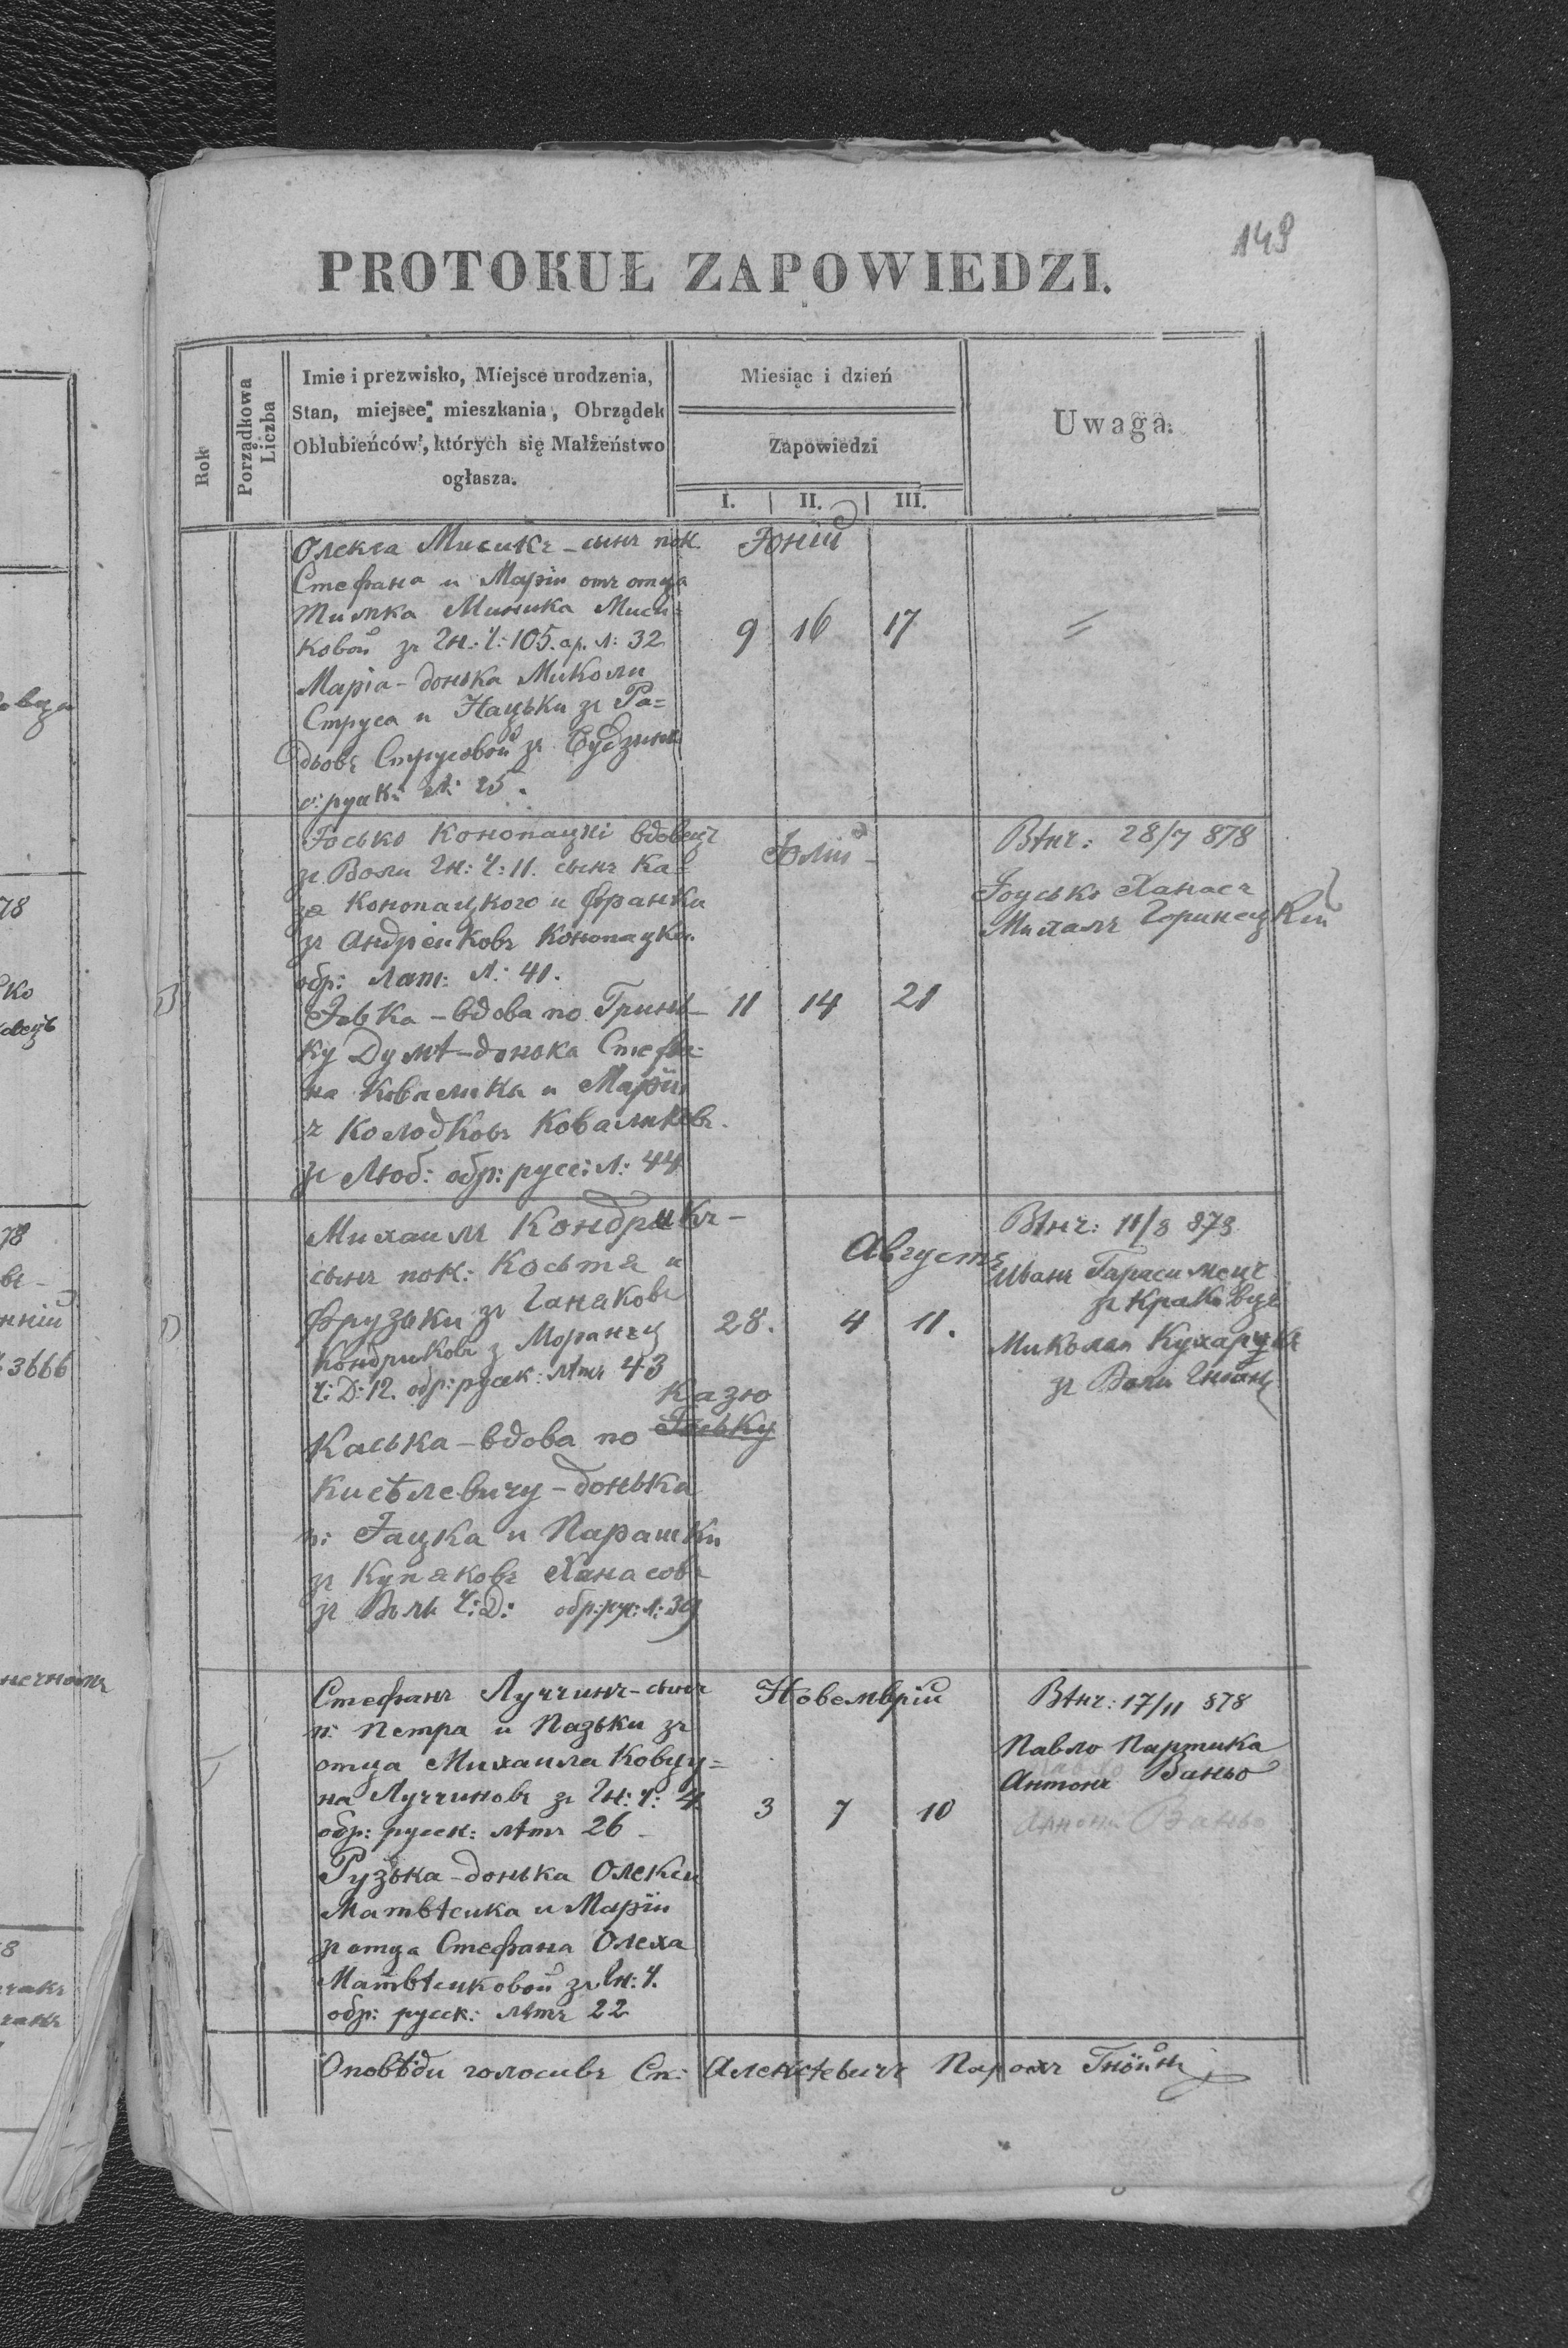 149
PROTOKUŁ ZAPOWIEDZI.
Rok
Porządkowa Liczba
Imie i prezwisko, Miejsce urodzenia,
Stan, miejsce mieszkania, Obrządek
Oblubieńców, których się Małżeństwo
ogłasza.
Miesiąc i dzień
Zapowiedzi
I. II. III.
Uwaga.
Олекса Мисикъ - сынъ пок.
Стефана и Маріи отъ отца
Тимка Мисика Миси-
ковой зъ Гн: Ч: 105. ар. л: 32
Марія - донька Миколи
Струса и Нацьки зъ Ра=
дьовъ Струсовой зъ Будзинь
о: руск: л: 25.
Юній
9 16 17
Іосько Конопацкі вдовецъ
зъ Воли Гн: Ч: 11. сынъ Ка-
зя Конопацкого и Франки
зъ Андрейковъ Конопацки.
обр: лат: л: 41.
Іевка - вдова по Гринь-
ку Думѣ - донька Стефа-
на Ковалика и Маріи
зъ Колодковъ Коваликовъ.
зъ Люб: обр: русс: л: 44
Юлій -
11 14 21
Вѣнч: 28/7 878
Іосько Ханасъ
Михалъ Горинецкій
Михаилъ Кондрикъ -
сынъ пок: Костя и
Фрузьки зъ Ганаковъ
Кондриковъ з Моранец
Ч: Д: 12. обр: руск: лѣтъ 43
Казю
Каська - вдова по Іоську
Кисѣлевичу - донька
п: Іацка и Парашки
зъ Купяковъ Ханасовъ
зъ Воль Ч: Д: обр: рус: л: 39
Августъ
28. 4 11.
Вѣнч: 11/8 878
Иванъ Гарасимецъ
зъ Краковця
Миколай Кухарукъ
зъ Воли Гноин
Стефанъ Луччинъ - сынъ
п: Петра и Пазьки зъ
отца Михаила Ковцу=
на Луччиновъ зъ Гн: Ч: 4.
обр: русск: лѣтъ 26 -
Рузька - донька Олекси
Матвѣика и Маріи
зъ отца Стефана Олеха
Матвѣиковой зъ Гн: Ч.
обр: русск: лѣтъ 22
Новемврій
3 7 10
Вѣнч: 17/11 878
Павло Партика
Антонъ Баньо
Оповѣди голосивъ Сп: Алексѣевичъ Парохъ Гнойнц